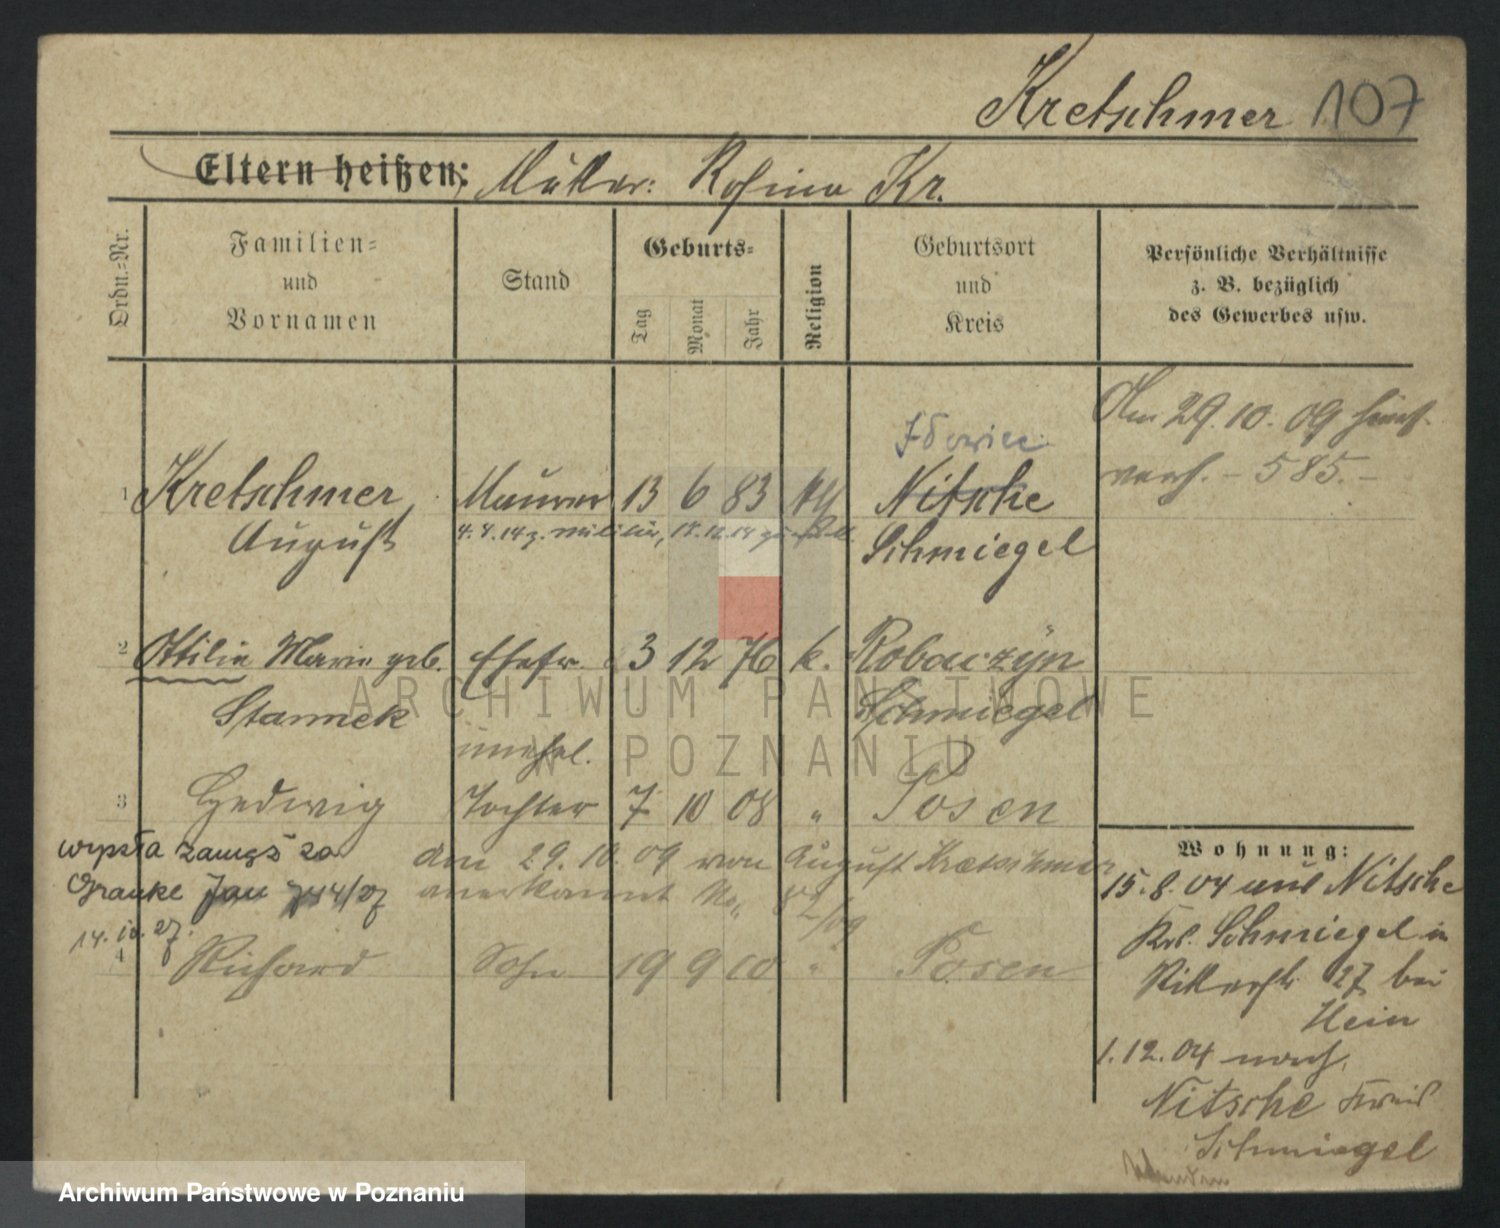 Kretschmer 107
Eltern heißen: Mutter: Rosina Kr.
Ordn.-Nr.
Familien-
und
Vornamen
Stand
Geburts-
Tag
Monat
Jahr
Religion
Geburtsort
und
Kreis
Persönliche Verhältnisse
z. B. bezüglich
des Gewerbes usw.
Am 29.10.09 hier
verh. - 585. -
1 Kretschmer, Maurer 13 6 83 Nitsche
August
4.8.14 z. Militär, 18.12.18
Schmiegel
2 Ottilie Marie geb. Ehefr. 3 12 76 k. Robaczyn
Stannek Schmiegel
unehel.
3 Hedwig Tochter 7 10 08 " Posen
wyszła zamąż za
Grauke Jan 744/27
14.10.27.
den 29.10.09 von August Kretschmer
anerkannt No. 82/09
4 Richard Sohn 19 9 10 " Posen
Wohnung:
15.8.04 aus Nitsche
Krs. Schmiegel in
Ritterstr. 27 bei
Hein
1.12.04 nach
Nitsche Kreis
Schmiegel
ARCHIWUM PAŃSTWOWE
W POZNANIU
Archiwum Państwowe w Poznaniu